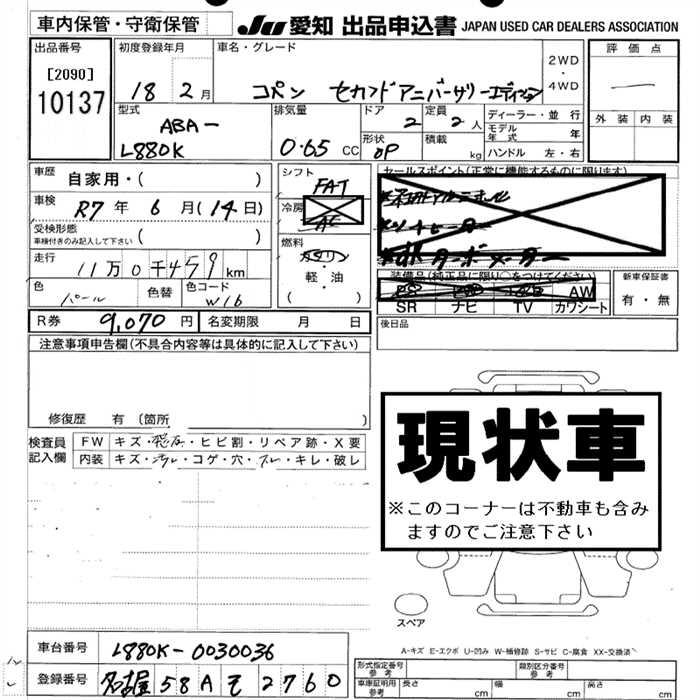 車内保管・守衛保管
JU 愛知 出品申込書 JAPAN USED CAR DEALERS ASSOCIATION
出品番号
[2090]
10137
初度登録年月
18 2月
車名・グレード
コペン セカンドアニバーサリーエディション
2WD
・
4WD
評価点
外装 内装
型式
ABA-
L880K
排気量
0.65 CC
ドア
2
定員
2 人
形状
OP
積載
kg
ディーラー・並行
モデル年式 年
ハンドル 左・右
車歴
自家用・( )
車検
R7年 6月(14日)
受検形態
車検付きのみ記入して下さい ( )
走行
11万0千459km
色
パール
色替
色コード
W16
シフト
FAT
冷房
AC
燃料
ガソリン
・
軽・油
( )
セールスポイント(正常に機能するものに限ります)
装備品(純正品に限り○をつけてください)
AW
SR ナビ TV カワシート
新車保証書
有・無
R券
9,070円
名変期限 月 日
後日品
注意事項申告欄(不具合内容等は具体的に記入して下さい)
修復歴 有(箇所 )
検査員
記入欄
FW キズ・飛石・ヒビ割・リペア跡・X要
内装 キズ・汚レ・コゲ・穴・スレ・キレ・破レ
現状車
※このコーナーは不動車も含み
ますのでご注意下さい
スペア
A-キズ E-エクボ U-凹み W-補修跡 S-サビ C-腐食 XX-交換済
車台番号
L880K-0030036
登録番号
名古屋 58A そ 2760
形式指定番号
参考
類別区分番号
参考
車庫証明用
参考
長さ cm
幅 cm
高さ cm